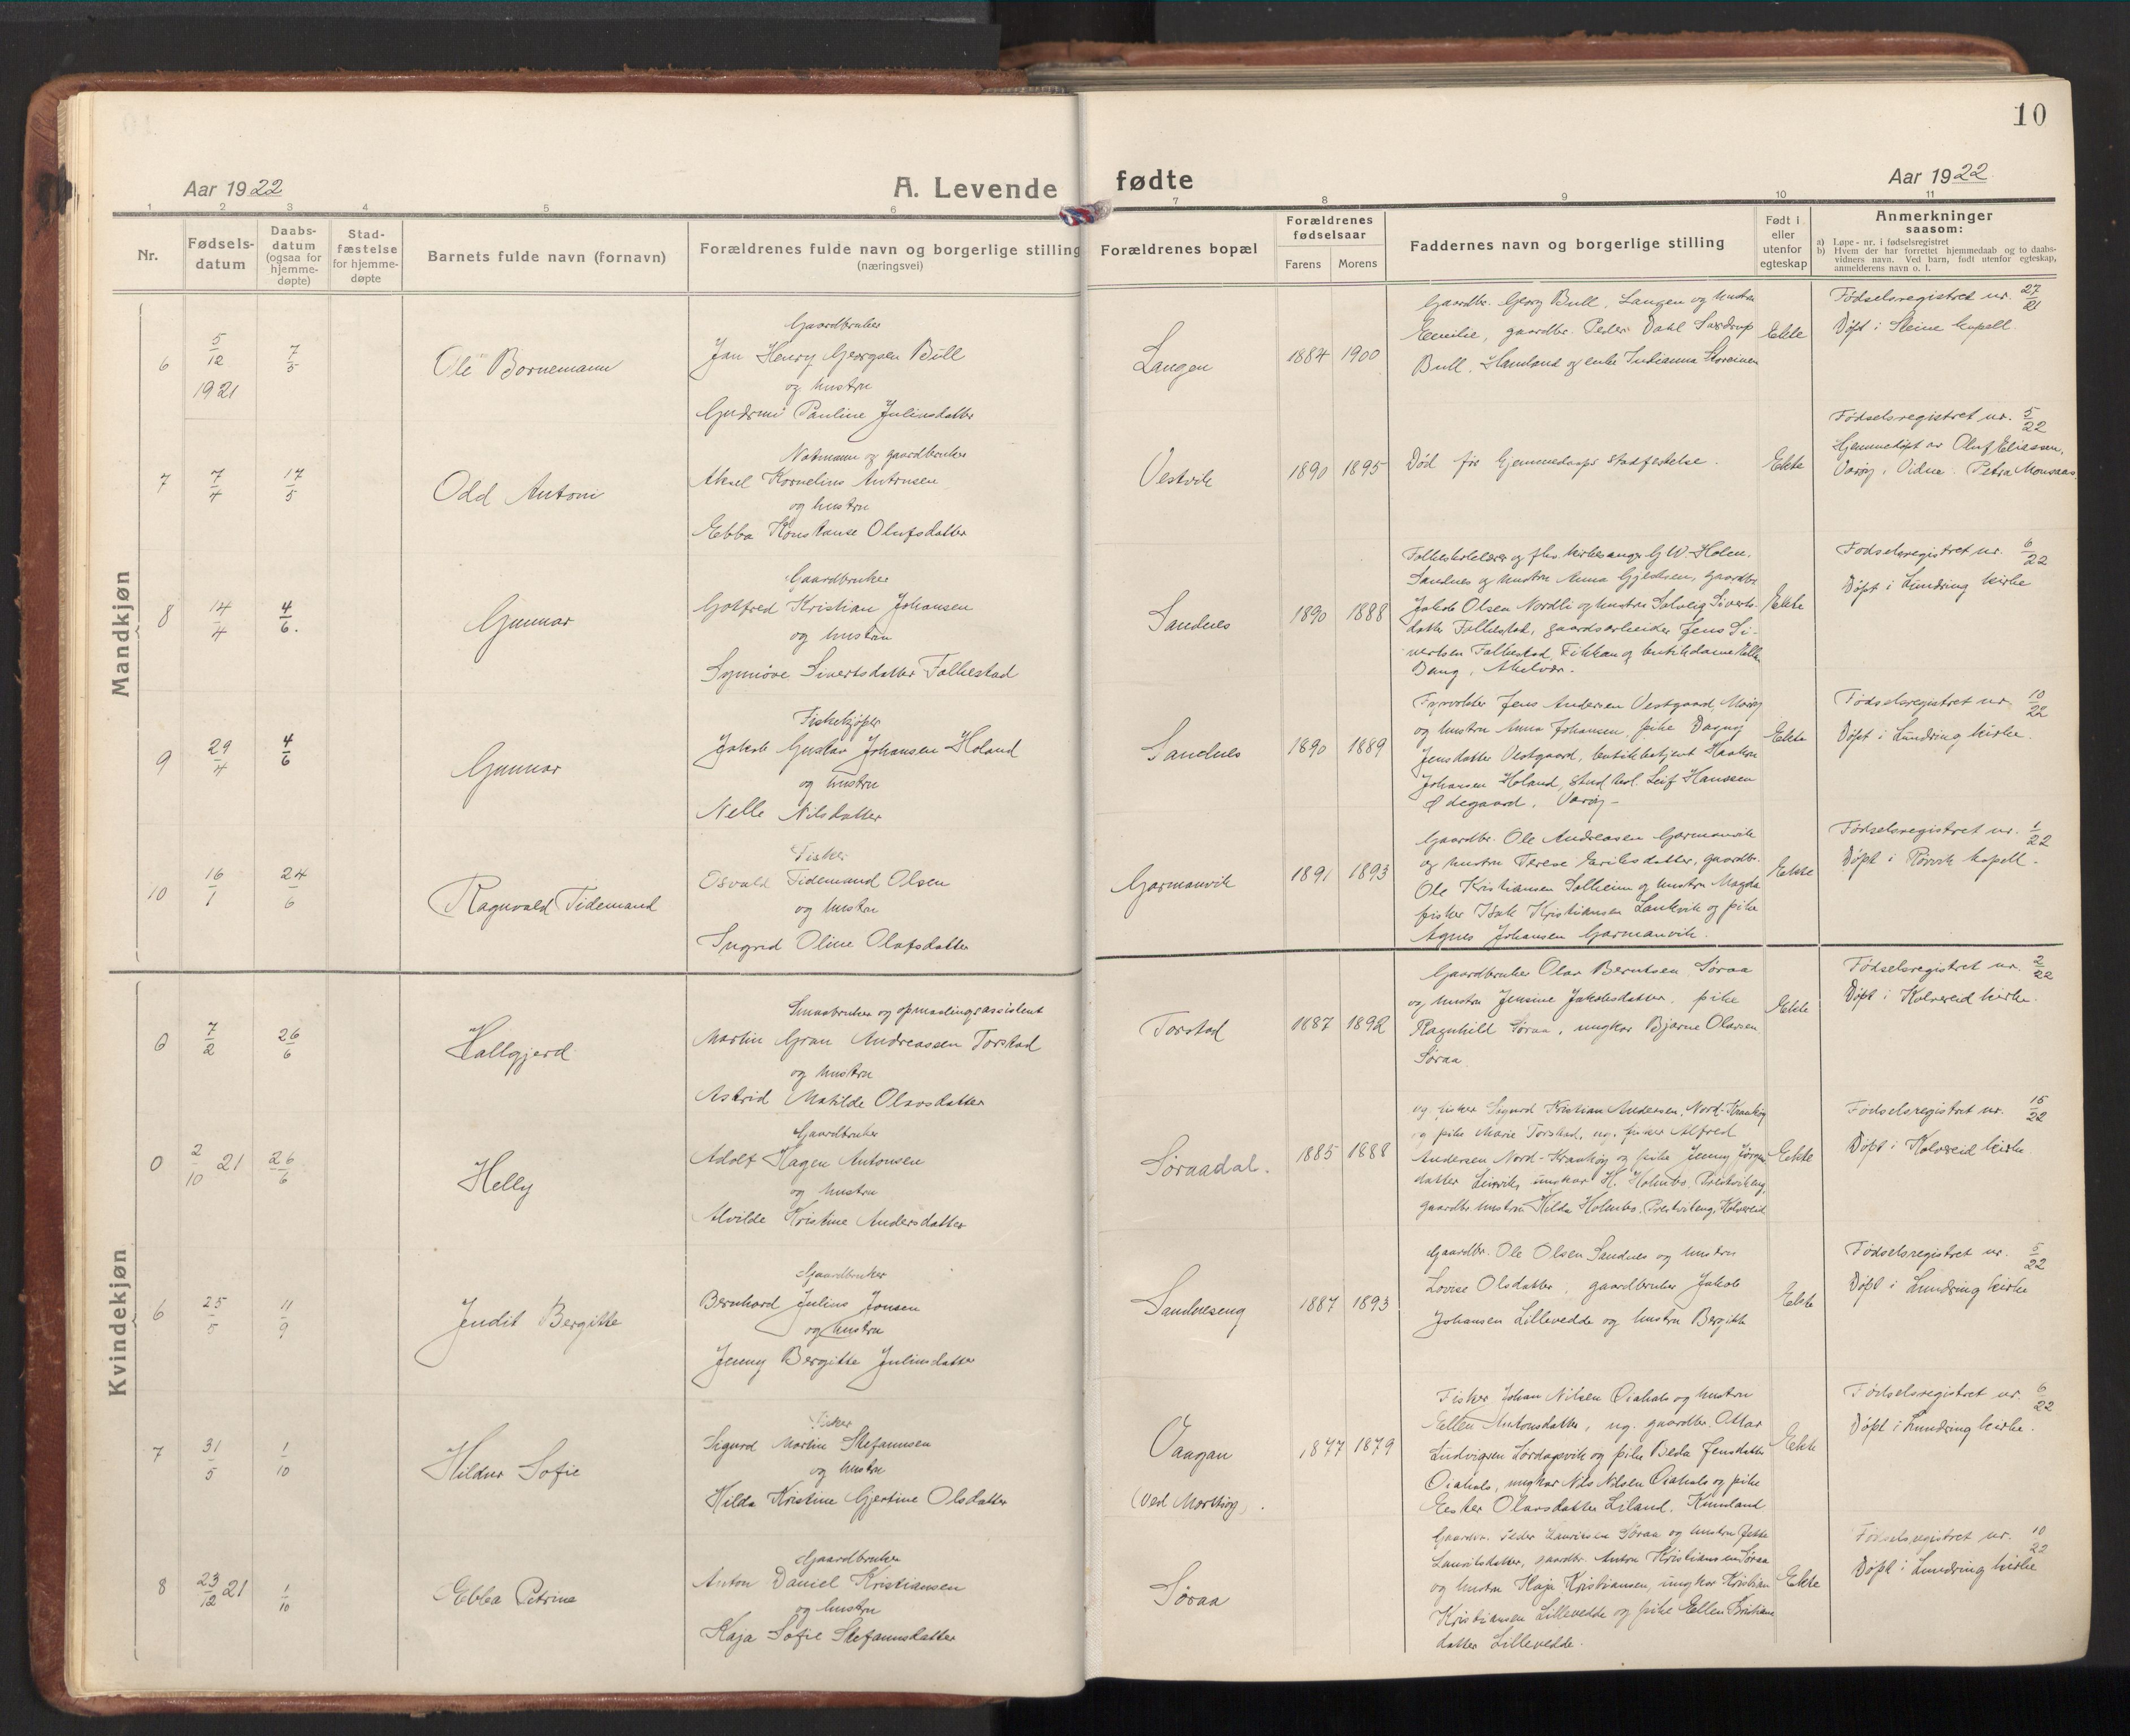 10
Aar 1922
A. Levende fødte
Aar 1922
1 2 3 4 5 6 7 8 9 10 11
Nr.
Fødsels-
datum
Daabs-
datum
(ogsaa for
hjemme-
døpte)
Stad-
fæstelse
for hjemme-
døpte
Barnets fulde navn (fornavn)
Forældrenes fulde navn og borgerlige stilling
(næringsvei)
Forældrenes bopæl
Forældrenes
fødselsaar
Farens Morens
Faddernes navn og borgerlige stilling
Født i
eller
utenfor
egteskap
Anmerkninger
saasom:
a) Løpe-nr. i fødselsregistret
b) Hvem der har forrettet hjemmedaab og to daabs-
vidners navn. Ved barn, født utenfor egteskap,
anmelderens navn o. l.
Mandkjøn
6
5/12
1921
7/5
Ole Bornemann
Gaardbruker
Jan Henry Georgsen Bull
og hustru
Gudrun Pauline Juliusdatter
Langen
1884 1900
Gaardbr. Georg Bull, Langen og hustru
Emilie, gaardbr. Peder Dahl
Bull, og enke
Ekte
Fødselsregistret nr. 27/21
Døpt i Steine kapell.
7
7/4
17/5
Odd Antoni
Notmann og gaardbruker
Aksel Kornelius Antonsen
og hustru
Ebba Konstanse Olufsdatter
Vestvik
1890 1895
Død før hjemmedaaps stadfestelse.
Ekte
Fødselsregistret nr. 5/22
Hjemmedøpt av Oluf Eliassen,
Værøy. Vidne. Petra
8
14/4
4/6.
Gunnar
Gaardbruker
Gotfred Kristian Johansen
og hustru
Synnøve Sivertsdatter Folkestad
Sandnes
1890 1888
Folkeskolelærer og kirkesanger G. W. Holen,
Sandnes og hustru Anna Gjertsen, gaardbr.
Jakob Olsen Nordli og hustru Solveig Siverts-
datter Folkestad, gaardsarbeider Jens Si-
vertsen Folkestad, og butikdame
Bang,
Ekte
Fødselsregistret nr. 6/22
Døpt i Lundring kirke
9
29/4
4/6
Gunnar
Fiskekjøper
Jakob Gustav Johansen Holand
og hustru
Nelle Nilsdatter
Sandnes
1890 1889
Fyrvokter Jens Andersen Vestgaard,
og hustru Anna Johansen, pike Dagny
Jensdatter Vestgaard, butikbetjent Haakon
Johansen Holand, stud. Leif Hanssen
Ødegaard,
Ekte
Fødselsregistret nr. 10/22
Døpt i Lundring kirke.
10
16/1
24/6
Ragnvald Tidemand
Fisker
Osvald Tidemand Olsen
og hustru
Ingrid Oline Olafsdatter
Garmanvik
1891 1893
Gaardbr. Ole Andreasen Garmanvik
og hustru Terese Eriksdatter, gaardbr.
Ole Kristiansen Solheim og hustru Magda
fisker Isak Kristiansen og pike
Agnes Johansen Garmanvik.
Ekte
Fødselsregistret nr. 1/22
Døpt i kapell.
Kvindekjøn
0
7/2
26/6
Hallgjerd
Smaabruker og opmaalingsassistent
Martin Gran Andreassen Torstad
og hustru
Astrid Matilde Olavsdatter
Torstad
1887 1892
Gaardbruker Olav Berntsen Søraa
og hustru Jensine Jakobsdatter, pike
Ragnhild Søraa, ungkar Bjarne Olavsen
Søraa
Ekte
Fødselsregistret nr. 2/22
Døpt i Kolvereid kirke.
0
2/10 21
26/6
Helly
Gaardbruker
Adolf Hagen Antonsen
og hustru
Alvilde Kristine Andersdatter
Søraadal.
1885 1888
ug. fisker Sigurd Kristian Andersen, Nord-Krankøy
og pike Marie Torstad, ug. fisker Alfred
Andersen Nord-Krankøy og pike Jenny Jørgens
datter Leirvik, ungkar H. Holmbo, Prestviteng,
gaardbr. hustru Hilda Holmbo, Prestviteng, Kolvereid
Ekte
Fødselsregistret nr. 15/22
Døpt i Kolvereid kirke
6
25/5
11/9
Jendit Bergitte
Gaardbruker
Bernhard Julius Jonsen
og hustru
Jenny Bergitte Juliusdatter
Sandneseng
1887 1893
Gaardbr. Ole Olsen Sandnes og hustru
Lovise Olsdatter, gaardbruker Jakob
Johansen Lillevedde og hustru Bergitte
Ekte
Fødselsregistret nr. 5/22
Døpt i Lundring kirke
7
31/5
1/10
Hildur Sofie
Fisker
Sigurd Martin Stefannsen
og hustru
Hilda Kristine Gjertine Olsdatter
Vaagan
(Ved Mortsøy).
1877 1879
Fisker Johan Nilsen Oiahals og hustru
Ellen Antonsdatter, ug. gaardbr. Ottar
Ludvigsen og pike Beda Jensdatter
Oiahals, ungkar Nils Nilsen Oiahals og pike
Ester Olavsdatter Liland,
Ekte
Fødselsregistret nr. 6/22
Døpt i Lundring kirke.
8
23/12 21
1/10
Ebba Petrine
Gaardbruker
Anton Daniel Kristiansen
og hustru
Kaja Sofie Stefannsdatter
Søraa
Gaardbr. Peder Lauritsen Søraa og hustru
Lauritsdatter, gaardbr. Anton Kristiansen Søraa
og hustru Kaja Kristiansen, ungkar Kristian
Kristiansen Lillevedde og pike Ellen Kristians
datter Lillevedde.
Ekte
Fødselsregistret nr. 10/22
Døpt i Lundring kirke